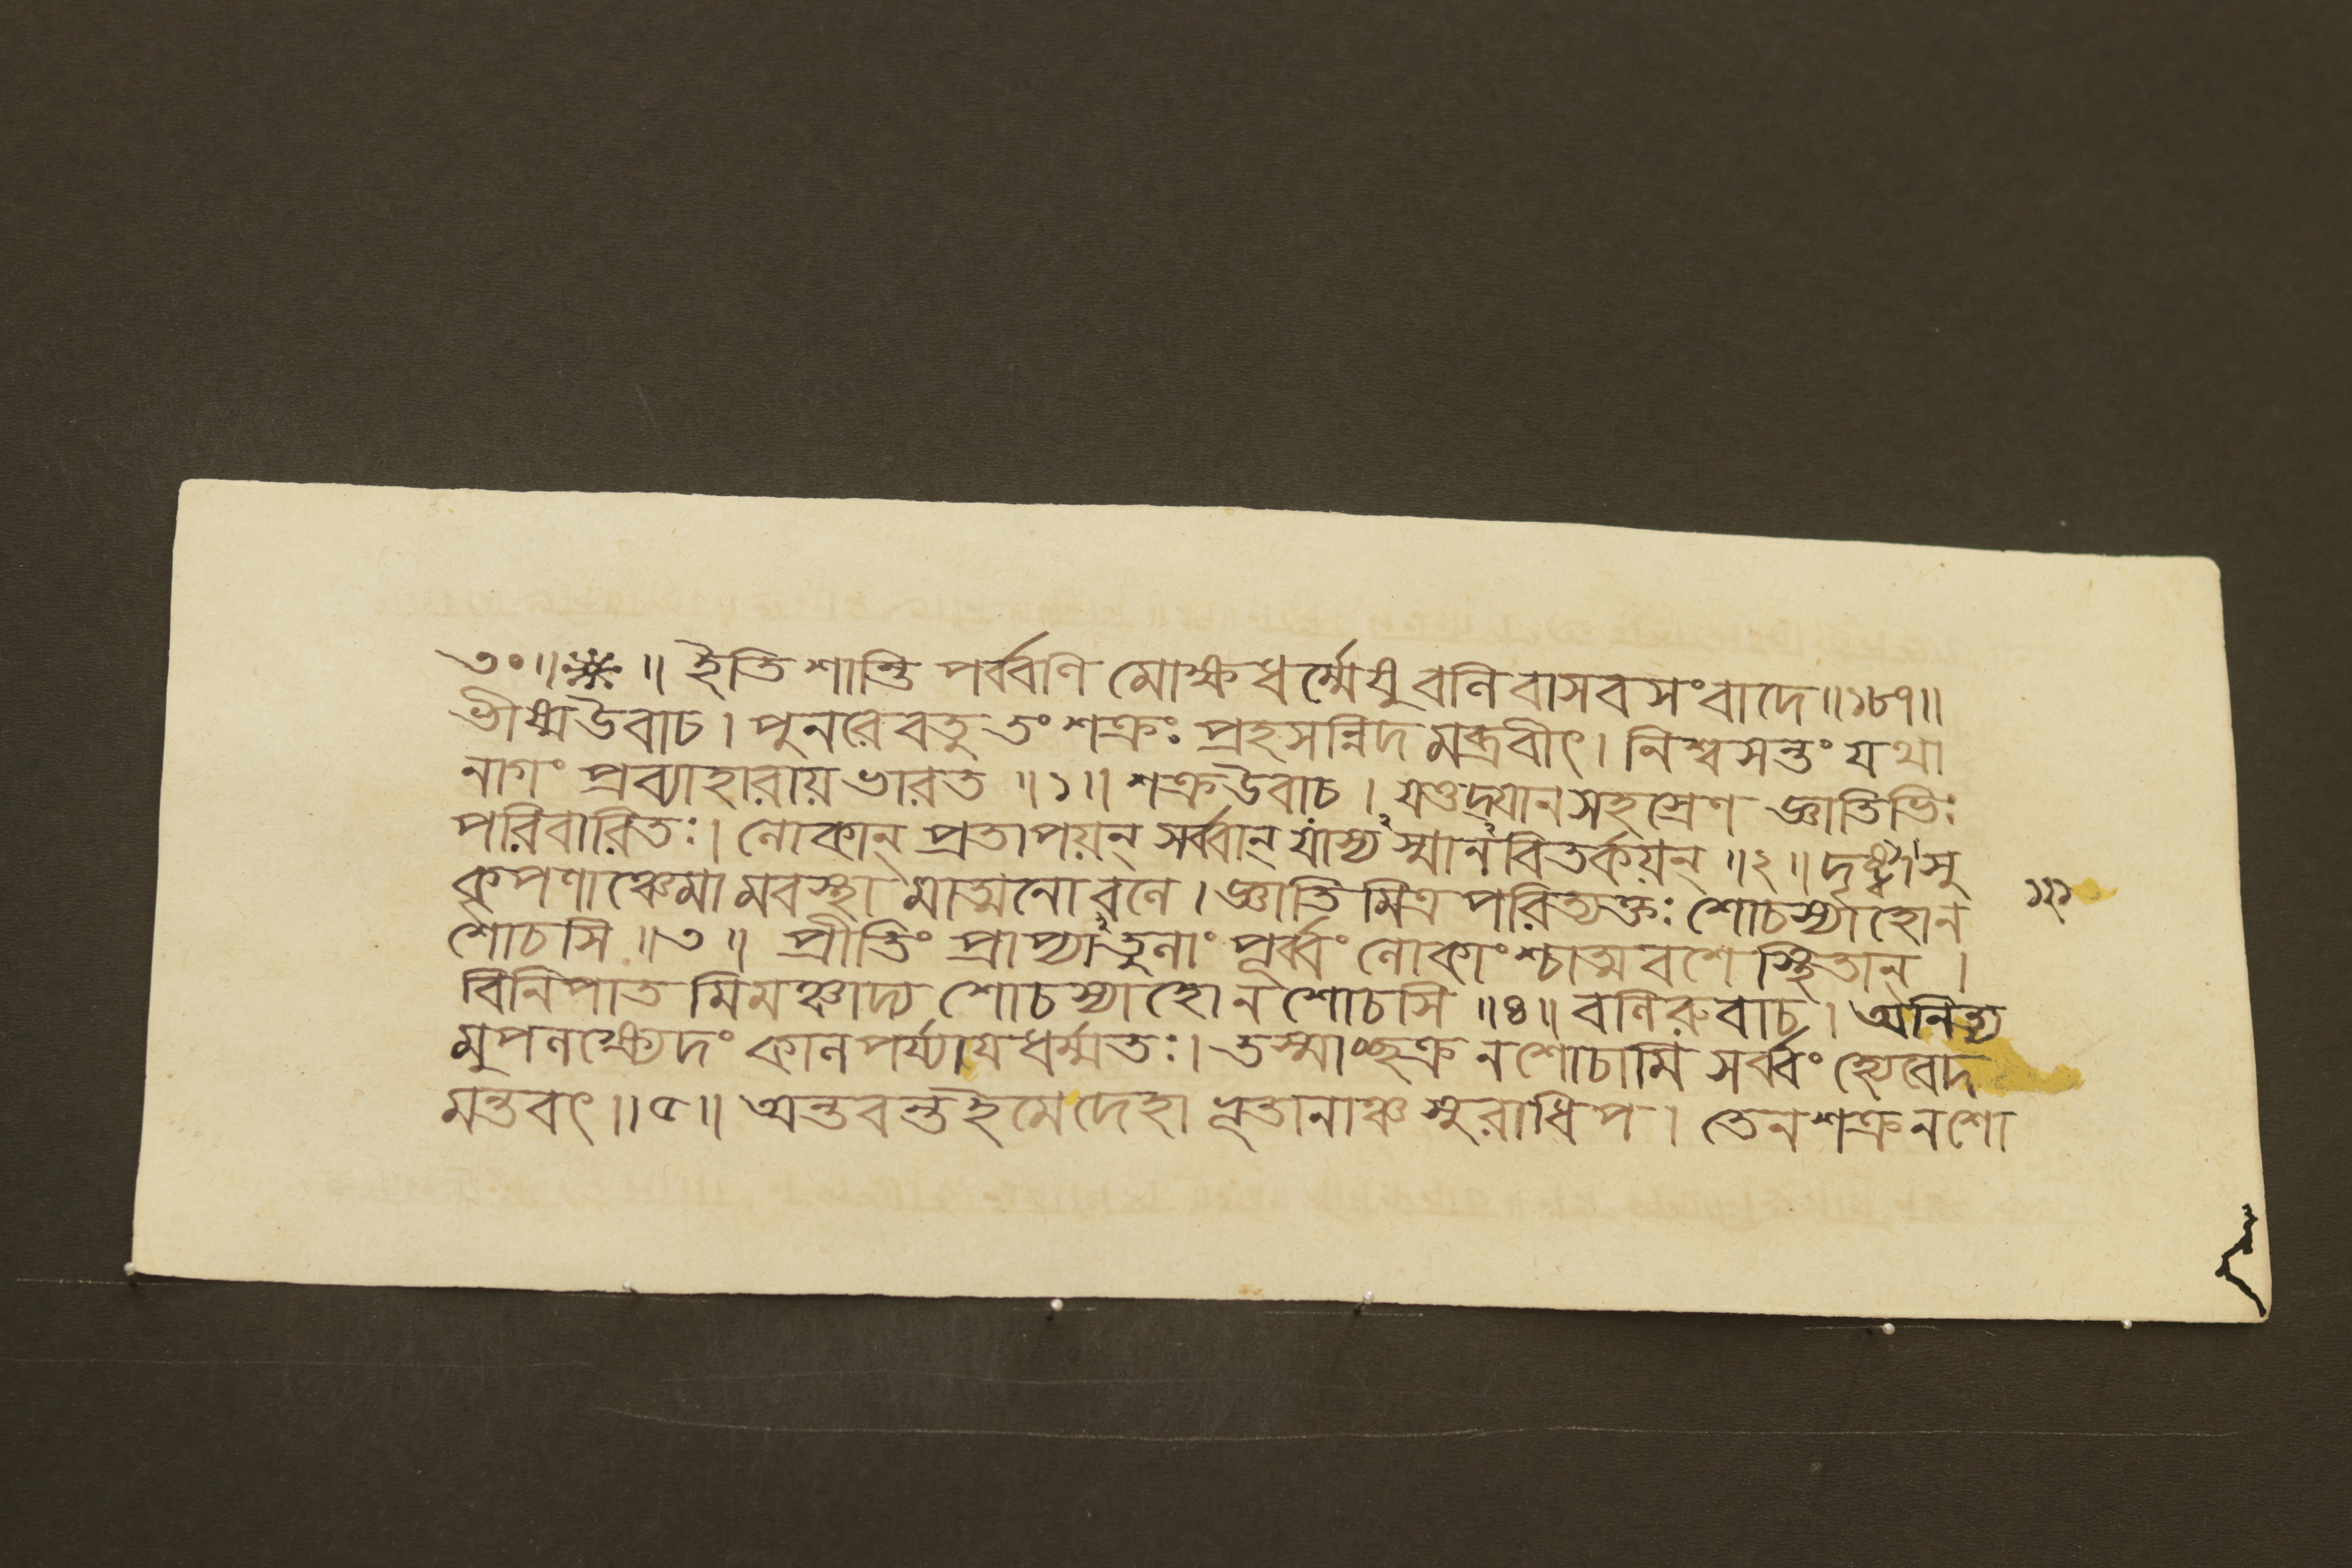 ৩০॥ ※ ॥ ইতি শান্তি পর্ব্বণি মোক্ষধর্ম্মেষু বলি বাসব সংবাদে॥১৮৭॥
ভীষ্মউবাচ। পুনরেবতু তং শক্রঃ প্রহসন্নিদমব্রবীৎ। নিশ্বসন্তং যথা
নাগং প্রব্যাহারায় ভারত ॥১॥ শক্রউবাচ। যত্তদ্যানসহস্রেণ জ্ঞাতিভিঃ
পরিবারিতঃ। লোকান্ প্রতাপয়ন্ সর্ব্বান্ যাস্যস্মানবিতর্কয়ন্ ॥২॥ দৃষ্ট্বাসু
কৃপণাঞ্চেমামবস্থামাত্মনো বলে। জ্ঞাতি মিত্র পরিত্যক্তঃ শোচস্যাহোন
শোচসি ॥৩॥ প্রীতিং প্রাপ্যাতুলাং পূর্ব্বং লোকাংশ্চাত্মবশে স্থিতান্।
বিনিপাতমিমঞ্চাদ্য শোচস্যাহোন শোচসি ॥৪॥ বলিরুবাচ। অনিত্য
মুপলক্ষ্যেদং কালপর্য্যায়ধর্ম্মতঃ। তস্মাচ্ছক্র নশোচামি সর্ব্বং হ্যেবেদ
মন্তবৎ॥৫॥ অন্তবন্তইমেদেহা ভূতানাঞ্চ সুরাধিপ। তেনশক্রনশো
১২১